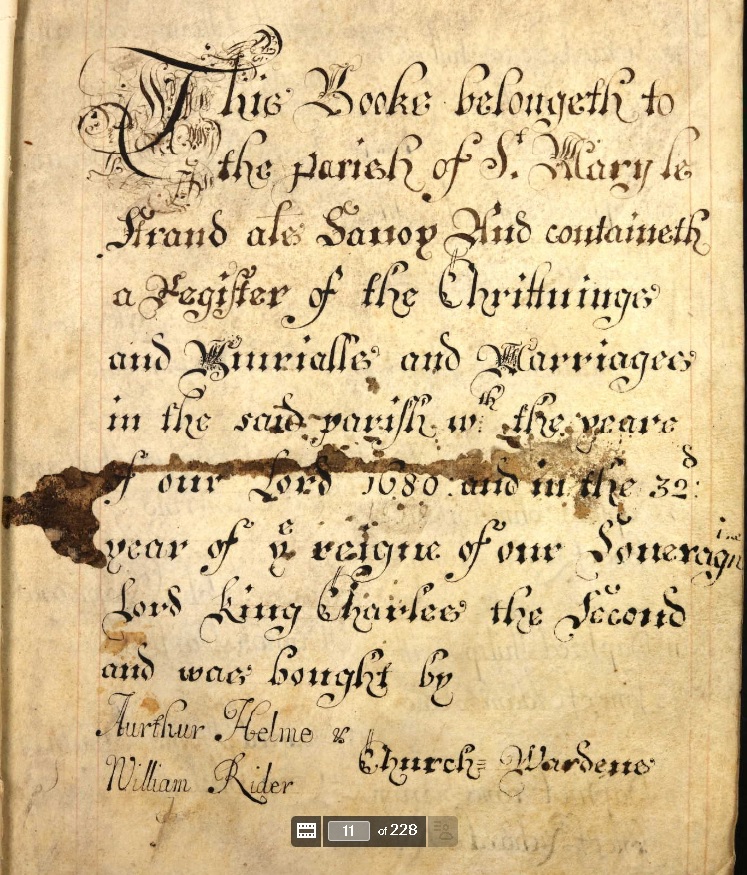 This Booke belongeth to
the parish of St. Mary le
Strand als Savoy And containeth
a Register of the Christnings
and Buurialls and Marriages
in the said parish wth. the yeare
of our Lord 1680. and in the 32d:
year of ye reigne of our Soveragn
Lord King Charles the Second
and was bought by
Aurthur Helme &
William Rider
Church= Wardens
11 of 228